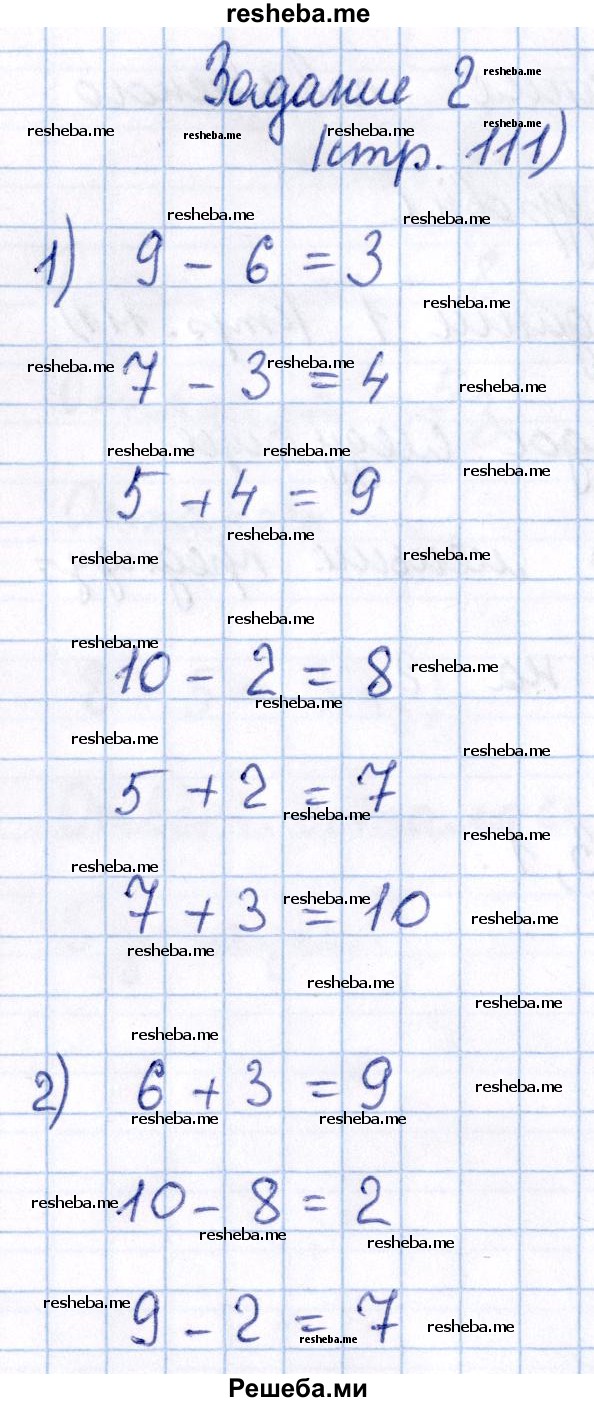 resheba.me
Задание 2
(стр. 111)
1) 9 - 6 = 3
7 - 3 = 4
5 + 4 = 9
10 - 2 = 8
5 + 2 = 7
7 + 3 = 10
2) 6 + 3 = 9
10 - 8 = 2
9 - 2 = 7
Решеба.ми